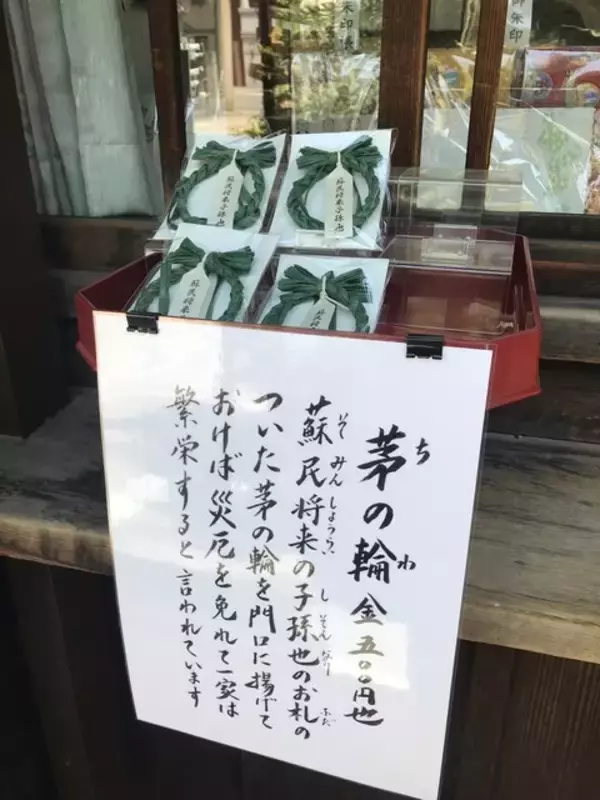 御朱印
朱印帳
蘇民将来子孫也
蘇民将来子孫也
蘇民将来
蘇民将
茅の輪 金五〇〇円也
ち わ
蘇民将来の子孫也のお札の
そ みん しょうらい し そん なり ふだ
ついた茅の輪を門口に揚げて
おけば災厄を免れて一家は
繁栄すると言われています